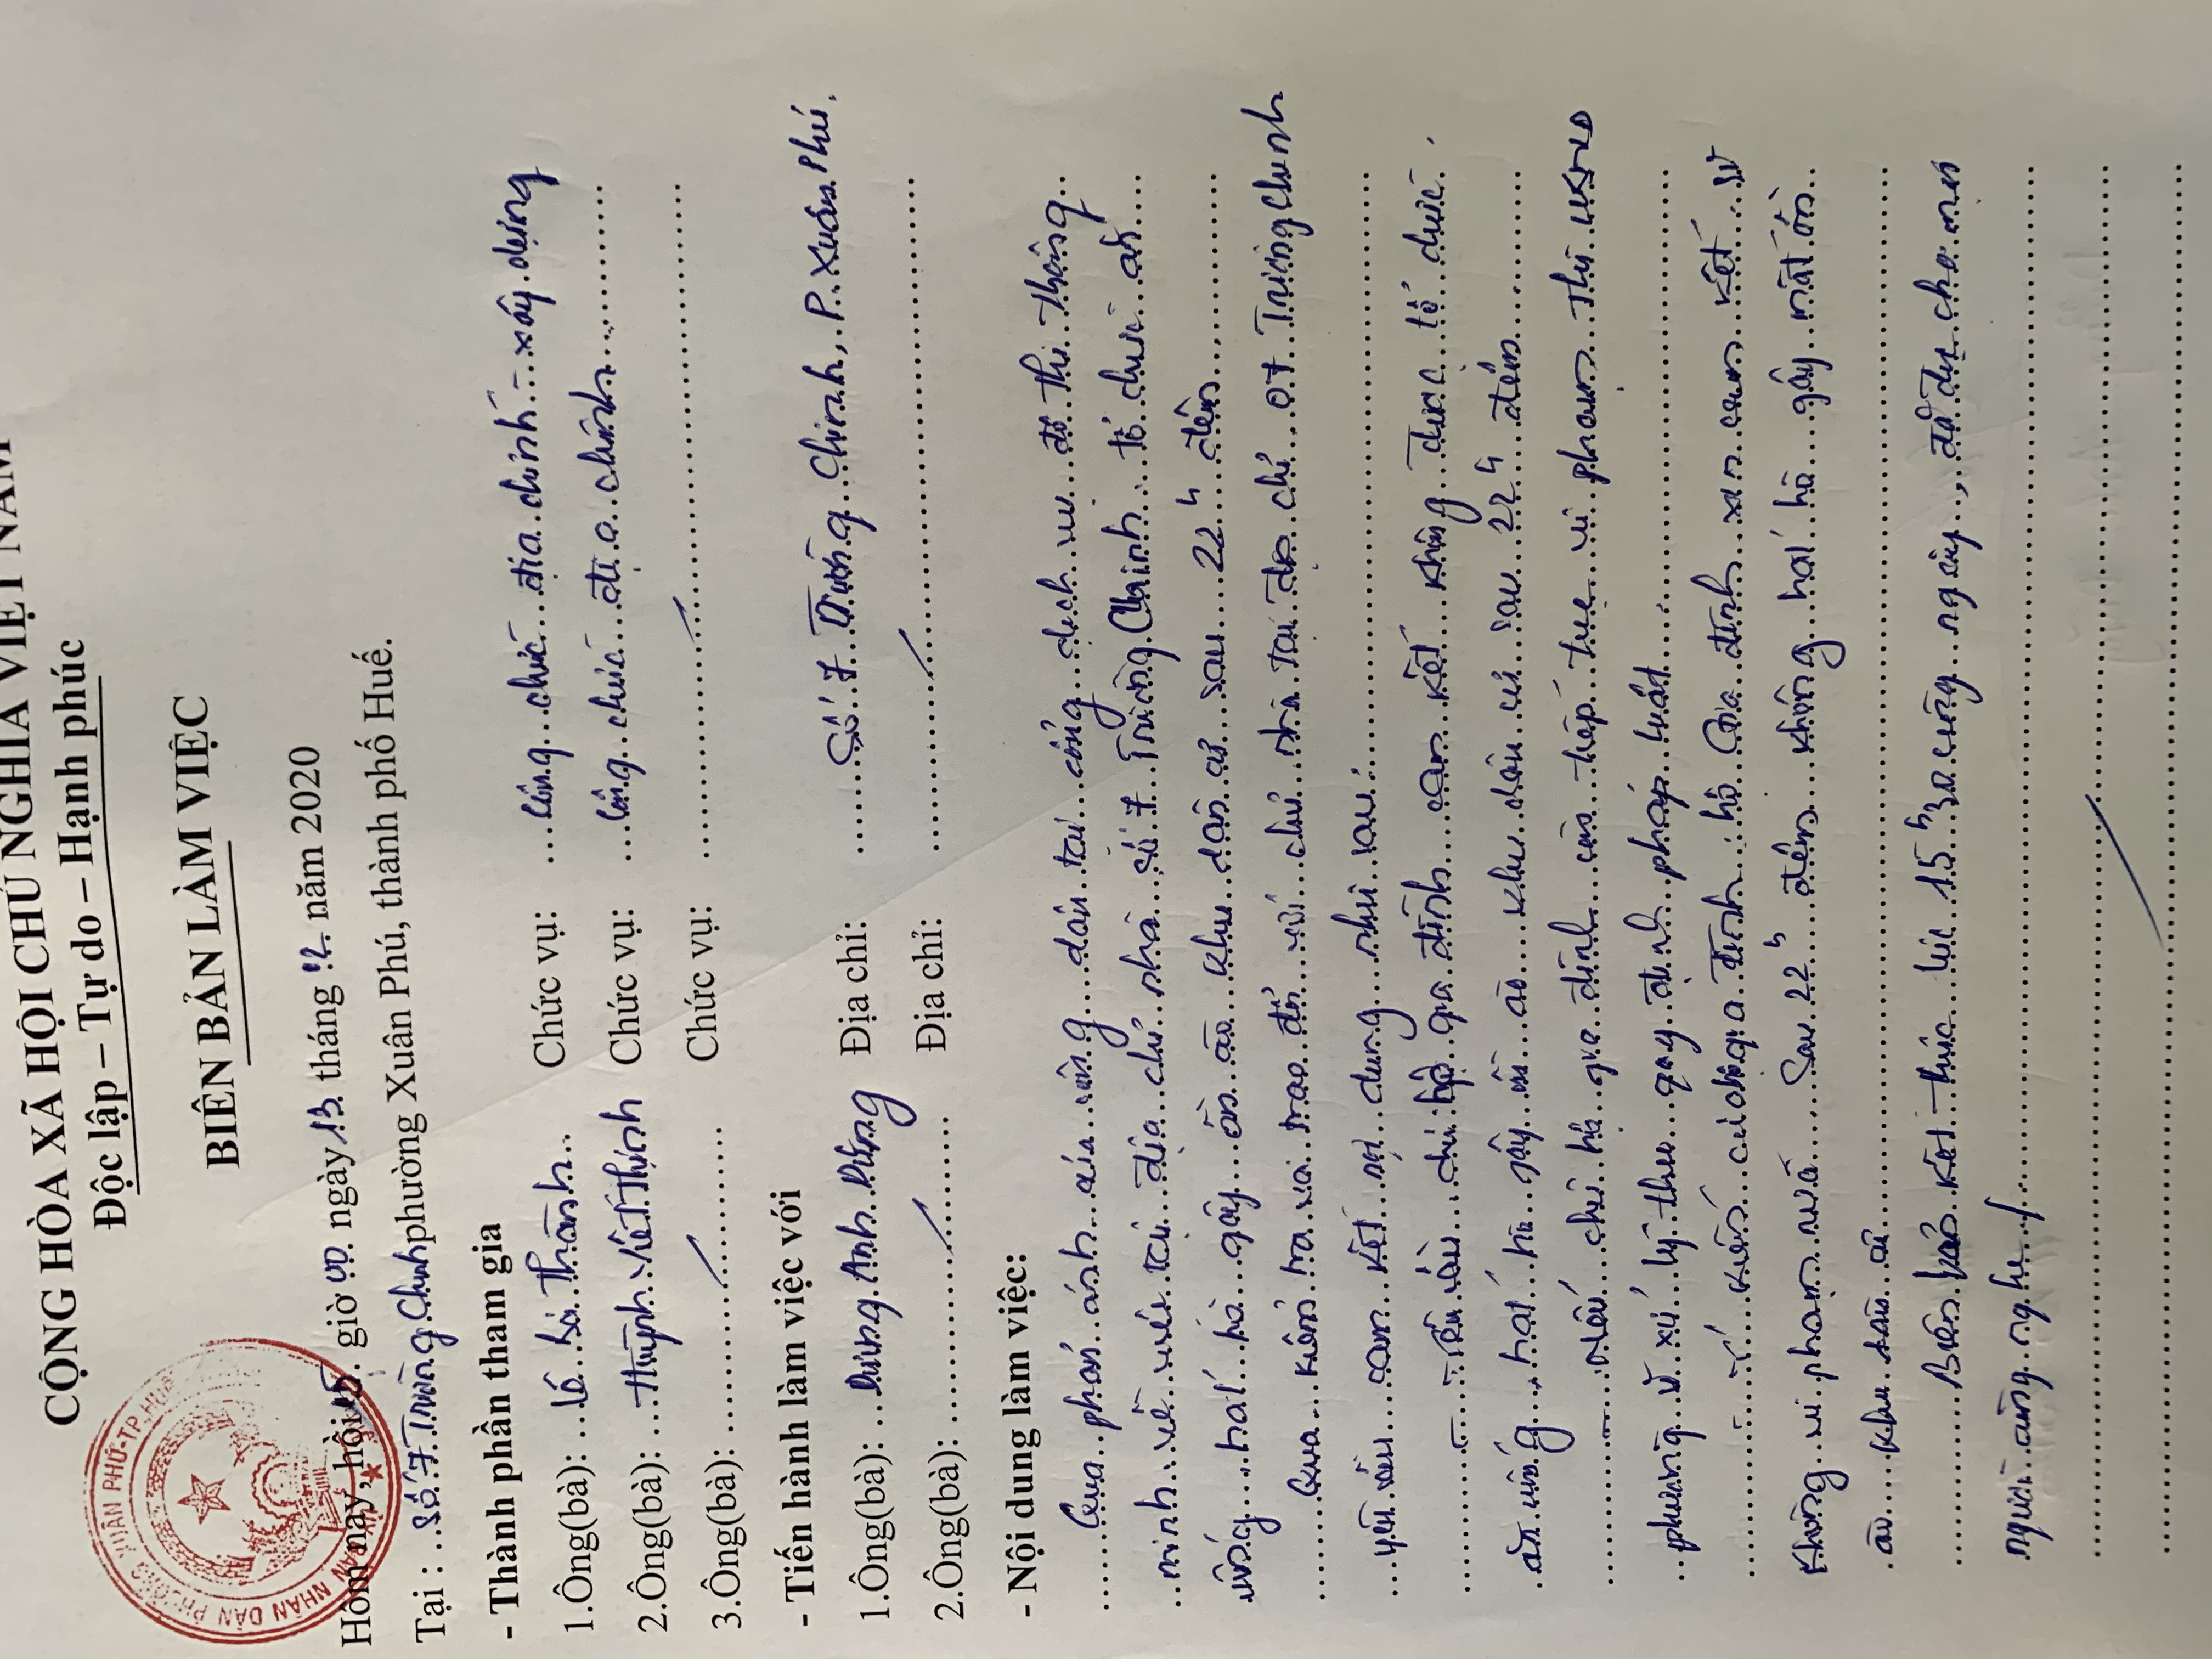 CỘNG HÒA XÃ HỘI CHỦ NGHĨA VIỆT NAM
Độc lập – Tự do – Hạnh phúc
BIÊN BẢN LÀM VIỆC
Hôm nay, hồi giờ 00 ngày 13 tháng 12 năm 2020
Tại : Số 7 Trường Chinh phường Xuân Phú, thành phố Huế.
- Thành phần tham gia
1.Ông(bà): Lê Bá Thành Chức vụ: Công chức địa chính - xây dựng
2.Ông(bà): Huỳnh Viết Thịnh Chức vụ: Công chức địa chính
3.Ông(bà): Chức vụ:
- Tiến hành làm việc với
1.Ông(bà): Dương Anh Dũng Địa chỉ: Số 7 Trường Chinh, P. Xuân Phú.
2.Ông(bà): Địa chỉ:
- Nội dung làm việc:
Qua phản ánh của công dân tại cổng dịch vụ đô thị thông
minh về việc tại địa chỉ nhà số 7 Trường Chinh tổ chức ăn
uống, hát hò gây ồn ào khu dân cư sau 22h đêm
Qua kiểm tra và trao đổi với chủ nhà tại địa chỉ 07 Trường Chinh
yêu cầu cam kết nội dung như sau:
- Yêu cầu chủ hộ gia đình cam kết không được tổ chức
ăn uống, hát hò gây ồn ào khu dân cư sau 22h đêm
- Nếu chủ hộ gia đình còn tiếp tục vi phạm thì UBND
phường sẽ xử lý theo quy định pháp luật.
- Ý kiến của hộ gia đình: hộ gia đình xin cam kết sẽ
không vi phạm nữa. Sau 22h đêm không hát hò gây mất ồn
ào khu dân cư
Biên bản kết thúc lúc 15h30 cùng ngày, đã đọc cho mọi
người cùng nghe./.
ỦY BAN NHÂN DÂN PHƯỜNG XUÂN PHÚ-TP.HUẾ